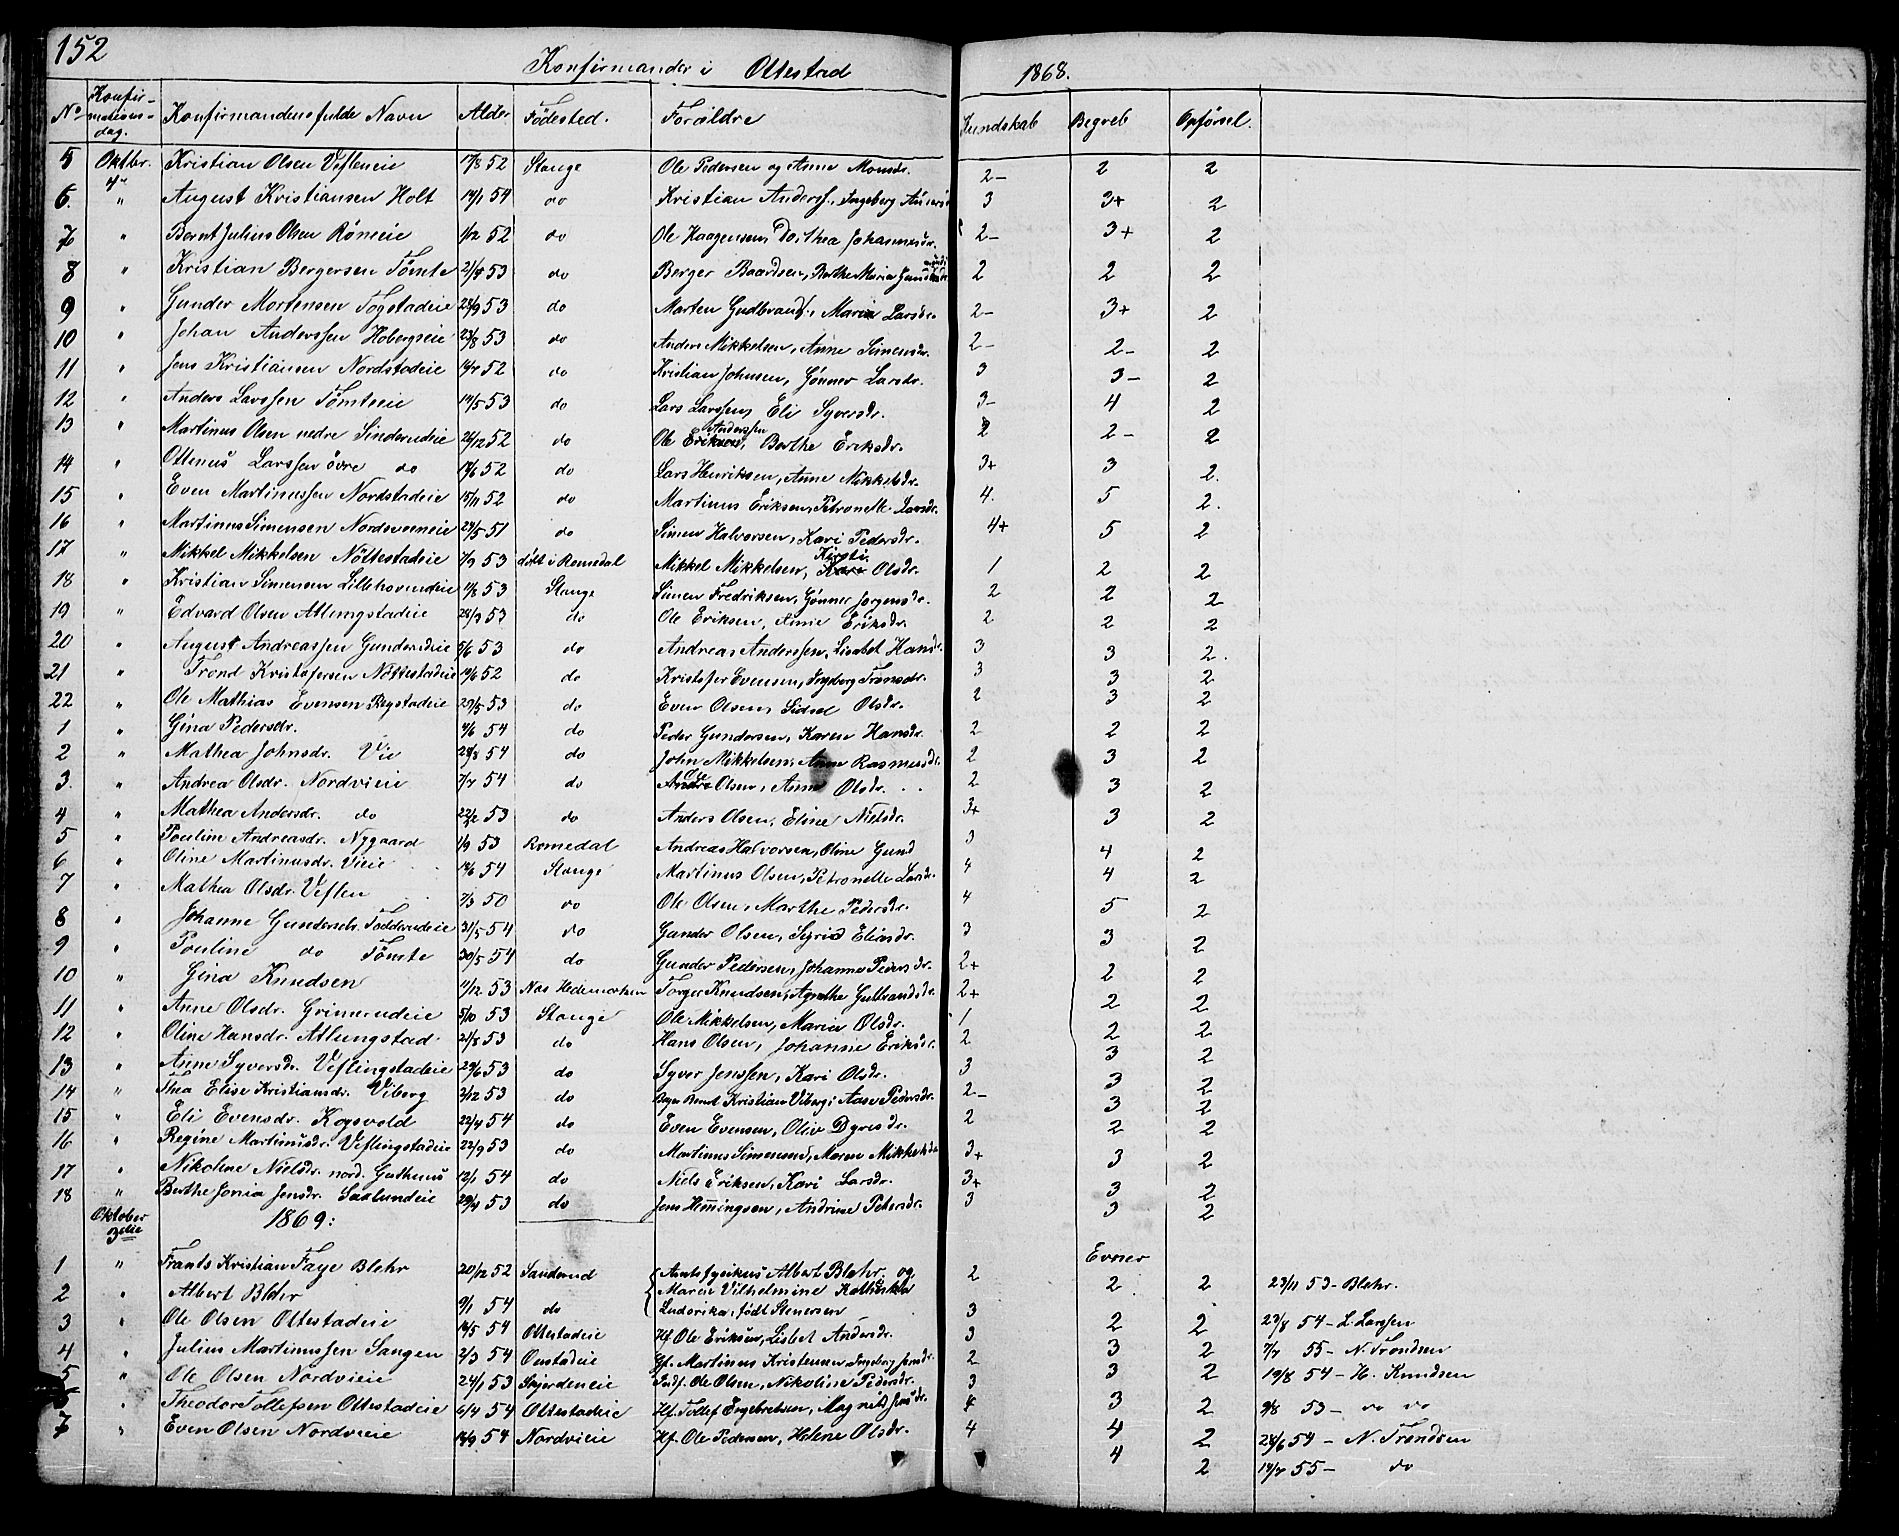 152
Konfirmander i Ottestad 1868.
No Konfirmationsdag. Konfirmandens fulde Navn Alder Fødested. Forældre Kundskab Begreb Opførsel.
5 Oktbr. 4de Kristian Olsen Vefleneie 17/8 52 Stange Ole Pedersen og Anne Monsdr. 2- 2 2
6. " August Kristiansen Holt 14/1 54 do Kristian Anderss., Ingeborg 3 3+ 2
7 " Bernt Julius Olsen Røneie 1/12 52 do Ole Haagensen, Dorthea Johannesdr. 2- 3+ 2
8 " Kristian Bergersen Tømte 21/8 53 do Berger Baardsen, Berthe Maria 2 2 2
9 " Gunder Mortensen Togstadeie 28/9 53 do Morten Gudbrands., Maria Larsdr. 2- 3+ 2
10 " Johan Anderssen Hobergseie 23/8 53 do Anders Mikkelsen, Anne Simensdr. 2- 2- 2
11 " Jens Kristiansen Nordstadeie 14/7 52 do Kristian Johnsen, Gønner Larsdr. 3 3- 2
12 " Anders Larssen Tømteeie 14/5 53 do Lars Larssen, Eli Syversdr. 3- 4 2
13 " Martinus Olsen nedre Sinderudeie 26/12 52 do Ole Eriksen, Anderssen Berthe Eriksdr. 2 2- 2
14 " Ottinus Larssen øvre do 17/6 52 do Lars Henriksen, Anne Mikkelsdr. 3+ 3 2.
15 " Even Martinussen Nordstadeie 15/11 52 do Martinus Eriksen, Petronelle Larsdr. 4. 5 2.
16 " Martinus Simensen Nordsveeneie 29/5 51 do Simen Halvorsen, Kari Pedersdr. 4+ 5 2
17 " Mikkel Mikkelsen Nøttestadeie 7/9 53 døbt i Romedal Mikkel Mikkelsen, Kari Kirsti Olsdr. 1 2 2
18 " Kristian Simensen Lillehovindeie 11/8 53 Stange Simen Fredriksen, Gønner Jørgensdr. 2 2 2
19 " Edvard Olsen Atlungstadeie 28/3 53 do Ole Eriksen, Anne Eriksdr. 2 2 2
20 " August Andreassen Gunderudeie 5/6 53 do Andreas Anderssen, Lisabet Hansdr. 3 3 2.
21 " Trond Kristofersen Nøttestadeie 19/6 52 do Kristofer Evensen, Ingborg Tronsdr. 3 3 2
22 " Ole Mathias Evensen Rystadeie 29/5 53 do Even Olsen, Sidsel Olsdr. 2 3 2
1 " Gina Pedersdr. 4/6 54 do Peder Gundersen, Karen Hansdr. 2 2 2
2 " Mathea Johnsdr. Vie 28/8 54 do John Mikkelsen, Anne Rasmusdr. 2 3 2
3. " Andrea Olsdr. Nordvieie 7/7 54 do Anders Ole Olsen, Anne Olsdr. 2 3 2
4 " Mathea Andersdr. do 22/2 53 do Anders Olsen, Eline Nielsdr. 3+ 3 2
5 " Pouline Andreasdr. Nygaard 1/9 53 Romedal Andreas Halvorsen, Oline Gund 3 4 2
6 " Oline Martinusdr. Vieie 19/6 54 Stange Martinus Olsen, Petronelle Larsdr. 4 4 2
7 " Mathea Olsdr. Veflen 7/3 50 do Ole Olsen, Marthe Pedersdr. 4 5 2
8 " Johanne Gundersdr. Fodderudeie 31/5 54 do Gunder Olsen, Sigrid Eliasdr. 3 3 2
9 " Pouline do Tømte 30/5 54 do Gunder Pedersen, Johanne Pedersdr. 2+ 2 2
10 " Gina Knudsen 11/12 53 Næs Hedemarken Torger Knudsen, Agnethe Gulbrandsdr. 2+ 2 2
11 " Anne Olsdr. Grimerudeie 5/10 53 Stange Ole Mikkelsen, Maria Olsdr. 1 2 2
12 " Oline Hansdr. Atlungstad 21/8 53 do Hans Olsen, Johanne Eriksdr. 2 3 2
13 " Anne Syversdr. Veflingstadeie 29/6 53 do Syver Jenssen, Kari Olsdr. 3 3 2
14 " Thea Elise Kristiansdr. Viberg 3/12 53 do Bernt Kristian Viberg, Aase Pedersdr. 2- 3 2
15 " Eli Evensdr. Kogsvold 22/4 54 do Even Evensen, Oliv Dyresdr. 2 2 2
16 " Regine Martinusdr. Veflingstadeie 22/9 53 do Martinus Simensen, Maren Mikkelsdr. 3+ 3 2
17 " Nikoline Nielsdr. nord. Guthuus 12/1 54 do Niels Eriksen, Kari Larsdr. 3+ 3 2
18 " Berthe Jonia Jensdr. Saxlundeie 29/4 53 do Jens Hemingsen, Andrine Petersdr. 3 3 2
Oktober 3die 1869:
Evner
1 " Frants Kristian Faye Blehr 20/12 52 Sanderud Amtsfysikus Albert Blehr og 2 2 2 23/11 53 - Blehr.
2 " Albert Blehr 9/1 54 do Maren Vilhelmine Kathinka Ludovika, født Stenersen 3 2 2 23/8 54 - L. Larssen
3 " Ole Olsen Ottestadeie 14/5 54 Ottestadeie Hf. Ole Eriksen, Lisbet Andersdr. 3 3 2 7/7 55 - N. Trondsen
4 " Julius Martinussen Sangen 2/3 54 Onstadeie Gf. Martinus Kristensen Ingeborg Jensdr. 2 3 2 19/8 54 - H. Knudsen
5 " Ole Olsen Nordvieie 24/1 53 Skjerdeneie Inds. Ole Olsen, Nikoline Pedersdr. 3 3 2 9/8 53 - do do
6 " Theodor Tollefsen Ottestadeie 6/4 54 Ottestadeie Hf. Tollef Engebretsen, Magnild Jensdr. 4 4 2 28/6 54 - N. Trondsen
7 " Even Olsen Nordvieie 18/9 54 Nordvieie Hf. Ole Pedersen, Helene Olsdr. 4 4 2 14/7 55 - do